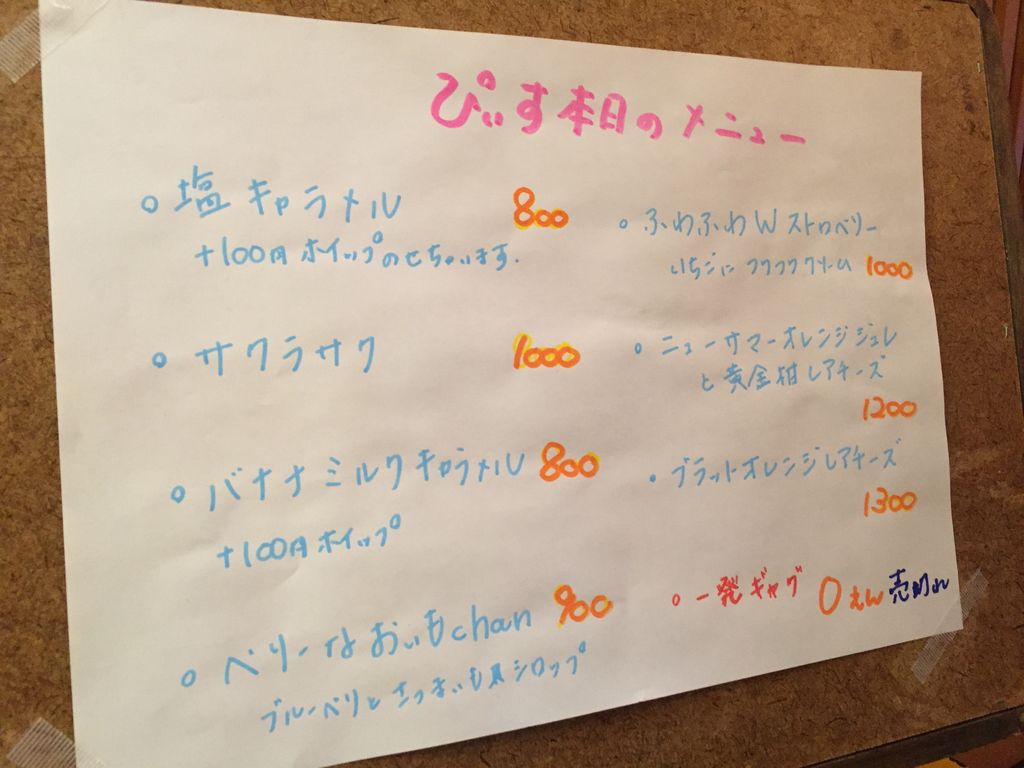 ぴぃす本日のメニュー
○ 塩キャラメル 800
+100円ホイップのせちゃいます.
○ サクラサク 1000
○ バナナミルクキャラメル 800
+100円ホイップ
○ ベリーなおいもchan 900
ブルーベリとさつまいも具シロップ
○ ふわふわWストロベリー
いちごに フワフワクリーム 1000
○ ニューサマーオレンジジュレ
と黄金柑レアチーズ
1200
○ ブラットオレンジレアチーズ
1300
○ 一発ギャグ 0えん 売切れ